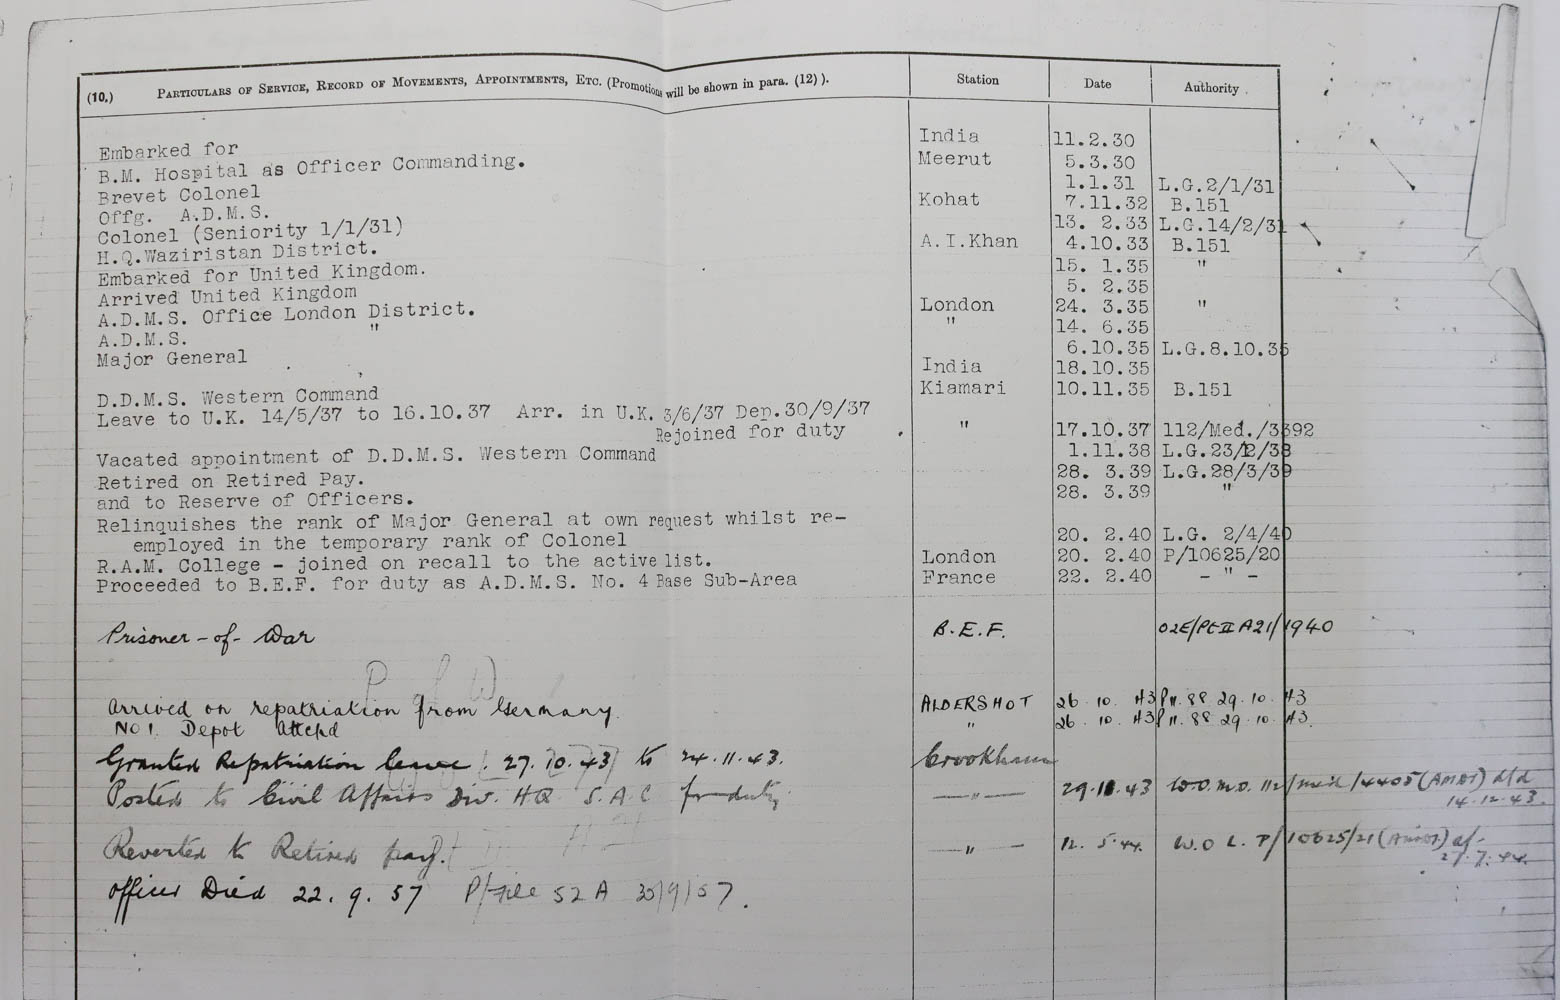 (10.) PARTICULARS OF SERVICE, RECORD OF MOVEMENTS, APPOINTMENTS, ETC. (Promotions will be shown in para. (12) ). Station Date Authority
Embarked for India 11.2.30
B.M. Hospital as Officer Commanding. Meerut 5.3.30
Brevet Colonel 1.1.31 L.G.2/1/31
Offg. A.D.M.S. Kohat 7.11.32 B.151
Colonel (Seniority 1/1/31) 13. 2.33 L.G.14/2/31
H.Q.Waziristan District. A.I.Khan 4.10.33 B.151
Embarked for United Kingdom. 15. 1.35 "
Arrived United Kingdom 5. 2.35
A.D.M.S. Office London District. London 24. 3.35 "
A.D.M.S. " " 14. 6.35
Major General 6.10.35 L.G.8.10.35
India 18.10.35
D.D.M.S. Western Command Kiamari 10.11.35 B.151
Leave to U.K. 14/5/37 to 16.10.37 Arr. in U.K. 3/6/37 Dep.30/9/37
Rejoined for duty " 17.10.37 112/Med./3392
Vacated appointment of D.D.M.S. Western Command 1.11.38 L.G.23/12/38
Retired on Retired Pay. 28. 3.39 L.G.28/3/39
and to Reserve of Officers. 28. 3.39 "
Relinquishes the rank of Major General at own request whilst re-
employed in the temporary rank of Colonel 20. 2.40 L.G. 2/4/40
R.A.M. College - joined on recall to the active list. London 20. 2.40 P/10625/20
Proceeded to B.E.F. for duty as A.D.M.S. No. 4 Base Sub-Area France 22. 2.40 - " -
Prisoner-of-War B.E.F. O2E/Pt II A21/1940
P of W
Arrived on repatriation from Germany. ALDERSHOT 26 . 10 . 43 PII. 88 29. 10. 43
No 1. Depot Attchd " 26 . 10 . 43 PII. 88 29. 10. 43.
Granted Repatriation leave . 27. 10. 43 to 24.11.43. Crookham
Posted to Civil Affairs Div. HQ S.A.C for duty. — " — 29.11.43 W.O.M.O. 112/Med/4405 (AMD1) dtd
14.12.43.
Reverted to Retired pay. — " — 12. 5.44. W.O L. P/10625/21 (AMD1) of
27.7.44.
Officer Died 22. 9. 57 P/File 52A 30/9/57.